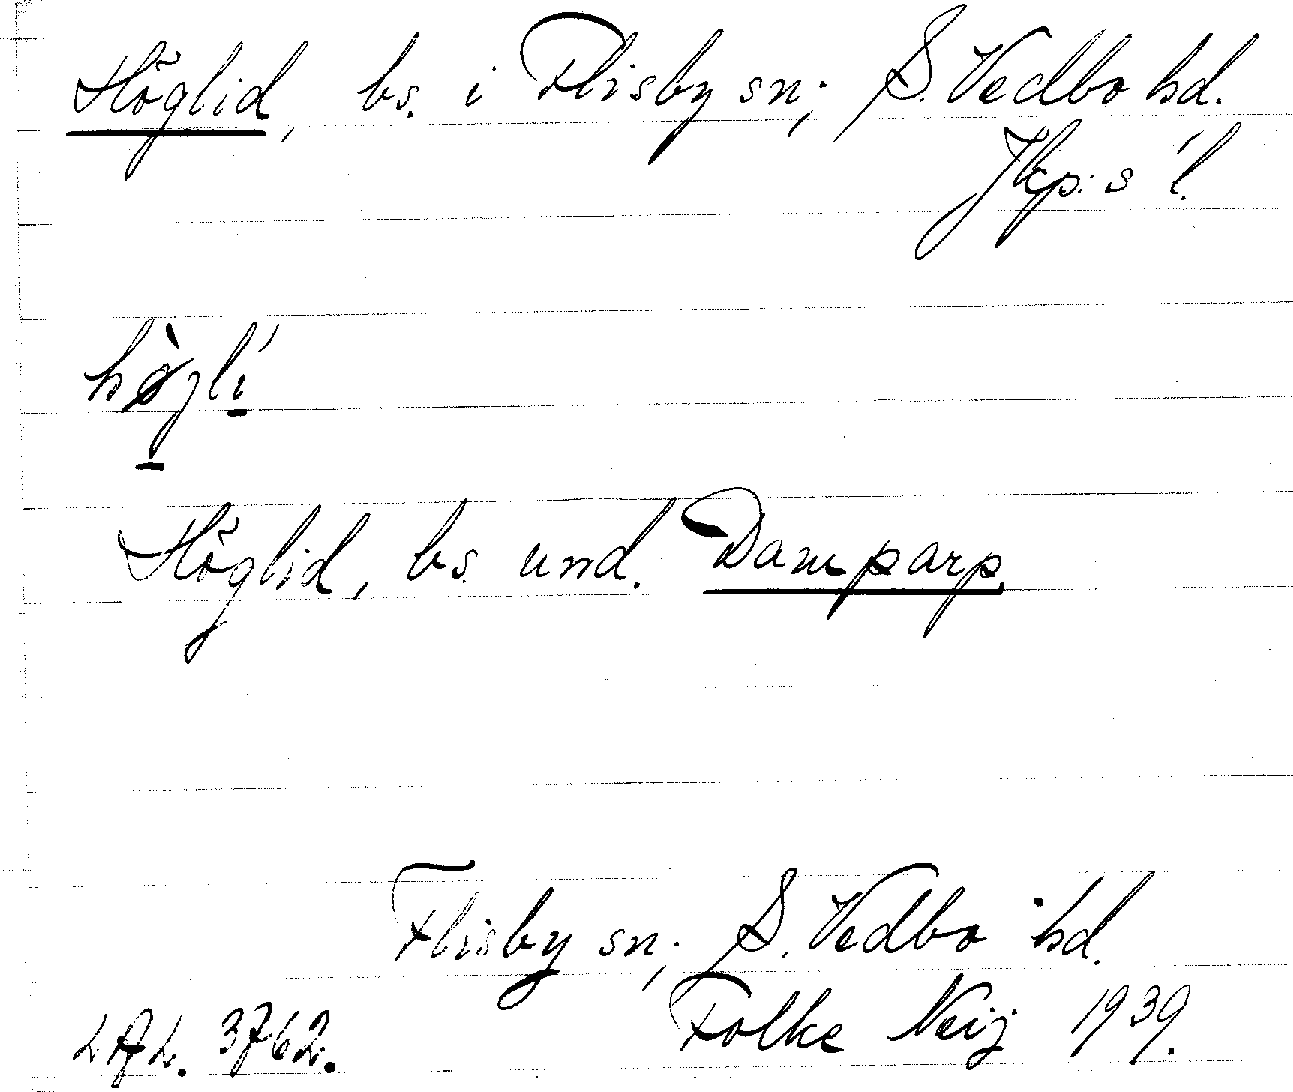 Höglid, bs. i Flisby sn; S. Vedbo hd.
Jkp:s l.
hø̀gli
Höglid, bs. und. Damparp.
Flisby sn; S. Vedbo hd.
Folke Neij 1939.
3762.